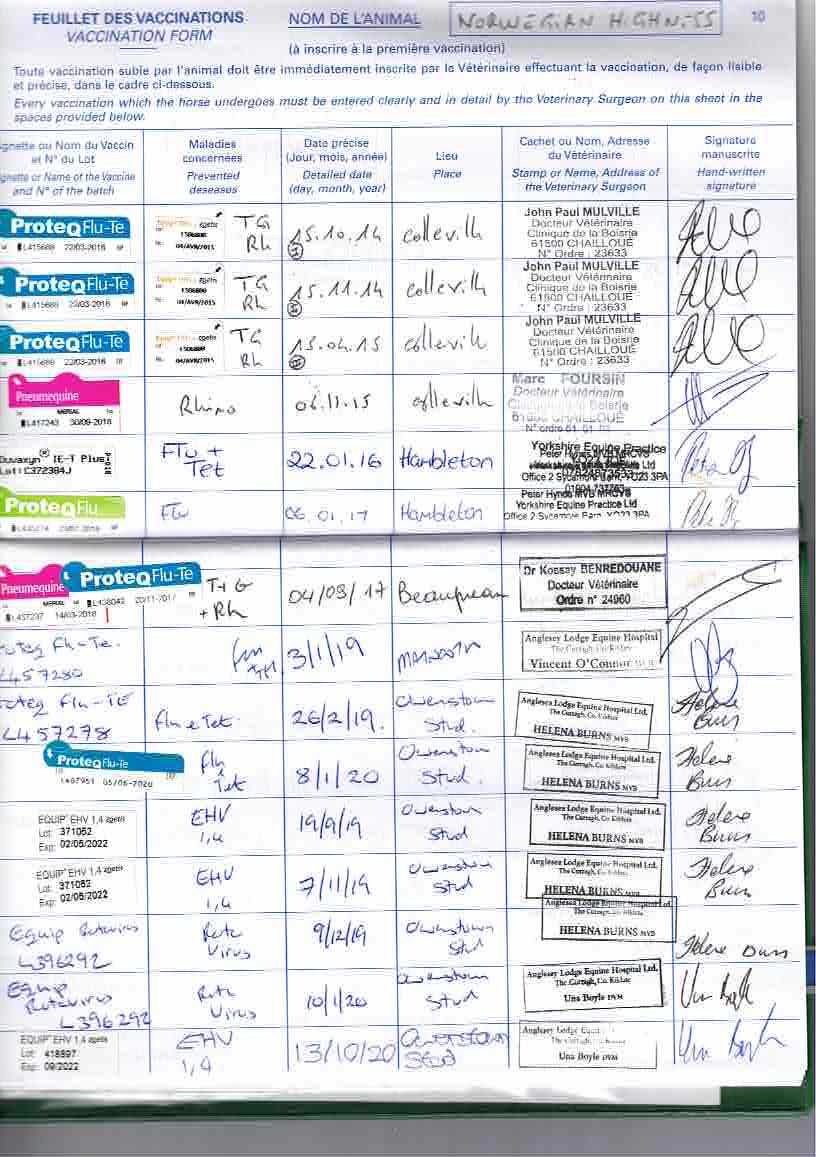 FEUILLET DES VACCINATIONS
VACCINATION FORM
NOM DE L'ANIMAL
NAME OF ANIMAL
NORWEGIAN HIGHNESS
10
(à inscrire à la première vaccination)
Toute vaccination subie par l'animal doit être immédiatement inscrite par le Vétérinaire effectuant la vaccination, de façon lisible
et précise, dans le cadre ci-dessous.
Every vaccination which the horse undergoes must be entered clearly and in detail by the Veterinary Surgeon on this sheet in the
spaces provided below.
gnette ou Nom du Vaccin
et N° du Lot
gnette or Name of the Vaccine
and N° of the batch
Maladies
concernées
Prevented
deseases
Date précise
(Jour, mois, année)
Detailed date
(day, month, year)
Lieu
Place
Cachet ou Nom, Adresse
du Vétérinaire
Stamp or Name, Address of
the Veterinary Surgeon
Signature
manuscrite
Hand-written
signature
ProteqFlu-Te
L415688 22/03/2016
zoetis
1506800
04/AVR/2015
TG
Rh
15.10.14
colleville
John Paul MULVILLE
Docteur Vétérinaire
Clinique de la Boisrie
61500 CHAILLOUÉ
N° Ordre : 23633
ProteqFlu-Te
L415688 22/03-2016
zoetis
1506800
04/AVR/2015
TG
Rh
15.11.14
colleville
John Paul MULVILLE
Docteur Vétérinaire
Clinique de la Boisrie
61500 CHAILLOUÉ
N° Ordre : 23633
ProteqFlu-Te
L415688 22/03-2016
zoetis
1506800
04/AVR/2015
TG
Rh
15.04.15
colleville
John Paul MULVILLE
Docteur Vétérinaire
Clinique de la Boisrie
61500 CHAILLOUÉ
N° Ordre : 23633
Pneumequine
MERIAL
L417243 30/09-2016
Rhino
06.11.15
colleville
Marc FOURSIN
Docteur Vétérinaire
Boisrie
CHAILLOUÉ
N° ordre
Duvaxyn IE-T Plus
Lot:C372384J
Flu +
Tet
22.01.16
Hambleton
Yorkshire Equine Practice
Peter Hynes MVB MRCVS
Office 2 Sycamore Barn, YO23 3PA
ProteqFlu
Flu
06.01.17
Hambleton
Peter Hynes MVB MRCVS
Yorkshire Equine Practice Ltd
Office 2 Sycamore Barn, YO23 3PA
Pneumequine
MERIAL
L437237 14/03-2018
ProteqFlu-Te
L438042 20/11-2017
T+G
+ Rh
04/03/17
Beaupreau
Dr Kossay BENREDOUANE
Docteur Vétérinaire
Ordre n° 24960
roteq Flu-Te.
L457280
3/1/19
Anglesey Lodge Equine Hospital
The Curragh, Co. Kildare
Vincent O'Connor
roteq Flu-TE
L457278
Flu e Tet.
26/2/19.
Owenstown
Stud.
Anglesea Lodge Equine Hospital Ltd.
The Curragh, Co. Kildare
HELENA BURNS MVB
Helene
Burns
ProteqFlu-Te
L467951 05/06-2020
Flu
Tet
8/1/20
Owenstown
Stud.
Anglesea Lodge Equine Hospital Ltd.
The Curragh, Co. Kildare
HELENA BURNS MVB
Helene
Burns
EQUIP EHV 1,4 zoetis
Lot: 371062
Exp: 02/05/2022
EHV
1,4
19/9/19
Owenstown
Stud
Anglesea Lodge Equine Hospital Ltd.
The Curragh, Co. Kildare
HELENA BURNS MVB
Helene
Burns
EQUIP EHV 1,4 zoetis
Lot: 371062
Exp: 02/05/2022
EHV
1,4
7/11/19
Owenstown
Stud
Anglesea Lodge Equine Hospital Ltd.
The Curragh, Co. Kildare
HELENA BURNS MVB
Helene
Burns
Equip Rotavirus
L396292
Rota
Virus
9/12/19
Owenstown
Stud
Anglesea Lodge Equine Hospital Ltd.
The Curragh, Co. Kildare
HELENA BURNS MVB
Helene Burns
Equip
Rotavirus
L396292
Rota
Virus
10/1/20
Owenstown
Stud
Anglesey Lodge Equine Hospital Ltd.
The Curragh, Co. Kildare
Una Boyle DVM
Una Boyle
EQUIP EHV 1,4 zoetis
Lot: 418897
Exp: 09/2022
EHV
1,4
13/10/20
Owenstown
Stud
Anglesey Lodge Equine
The Curragh, Co. Kildare
Una Boyle DVM
Una Boyle